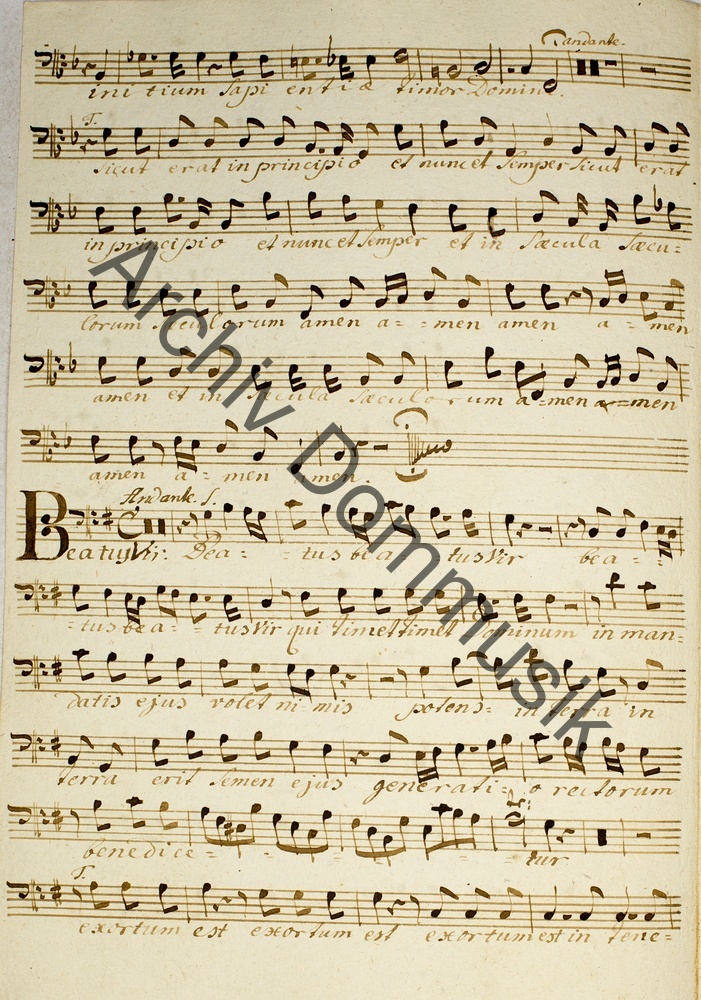 Tandante.
ini tium Sapi entiæ timor Domini.
T.
sicut erat in principio et nunc et Semper Sicut erat
in principio et nunc et Semper et in Sæcula Sæcu=
lorum Sæculorum amen a=-men amen a-men
amen et in Sæcula Sæculorum a=men a=men
amen a-men amen.
Andante. S.
Beatus Vir. Bea=-tus bea tus Vir bea=
=tus bea-=tus Vir qui timet timet Dominum in man=
datis ejus volet nimis potens= in terra in
terra erit Semen ejus generati=o rectorum
benedice=----tur
T.
exortum est exortum est exortum est in tene=
Archiv Dommusik